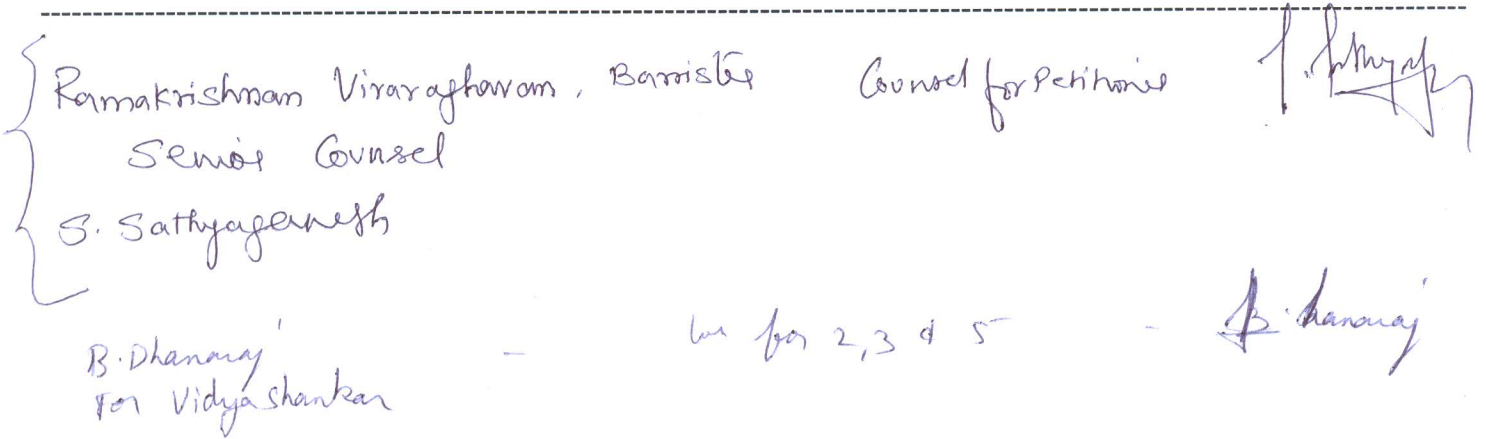 Ramakrishnan Viraraghavan, Barrister Counsel for Petitioner
Senior Counsel
S. Sathyaganesh
B. Dhanaraj - for 2, 3 & 5 - B. Dhanaraj
For Vidyashankar